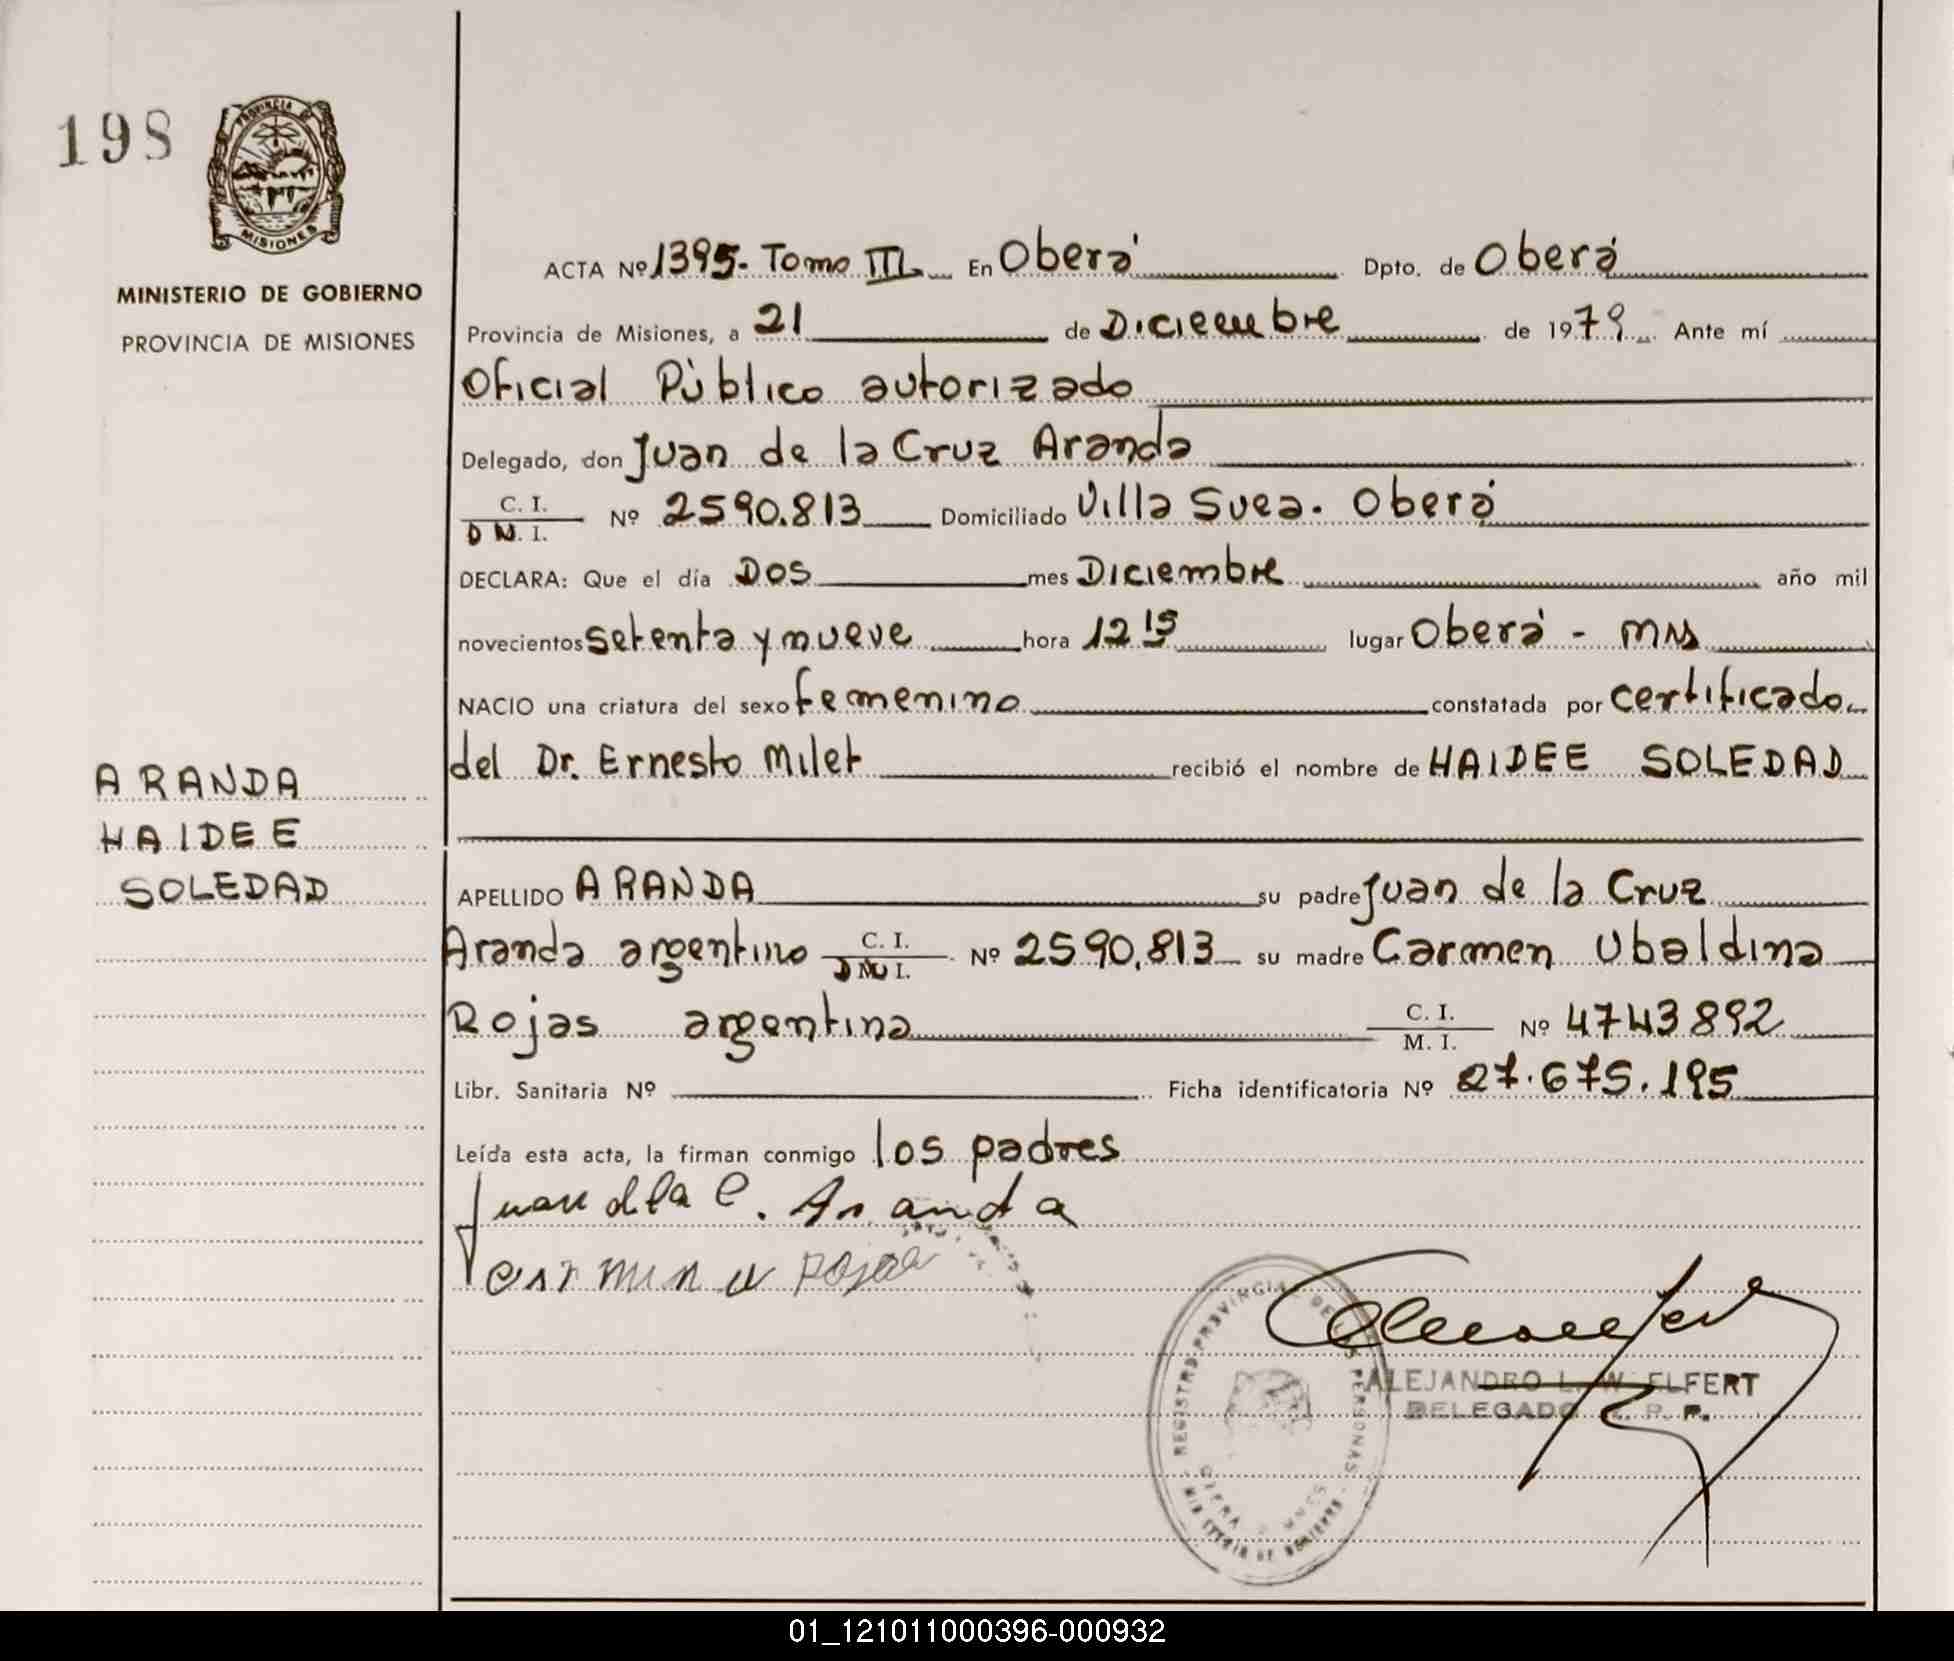 198
PROVINCIA DE
MISIONES
MINISTERIO DE GOBIERNO
PROVINCIA DE MISIONES
ARANDA
HAIDEE
SOLEDAD
ACTA Nº 1395- Tomo III En Oberá Dpto. de Oberá
Provincia de Misiones, a 21 de Diciembre de 1979 Ante mí
Oficial Público autorizado
Delegado, don Juan de la Cruz Aranda
C. I.
D N. I. Nº 2590.813 Domiciliado Villa Svea. Oberá
DECLARA: Que el día Dos mes Diciembre año mil
novecientos setenta y nueve hora 12 15 lugar Oberá - Mns
NACIO una criatura del sexo femenino constatada por certificado
del Dr. Ernesto Milet recibió el nombre de HAIDEE SOLEDAD
APELLIDO ARANDA su padre Juan de la Cruz
Aranda argentino C. I. DN I. Nº 2590.813 su madre Carmen Ubaldina
Rojas argentina C. I. M. I. Nº 4743892
Libr. Sanitaria Nº Ficha identificatoria Nº 27.675.195
Leída esta acta, la firman conmigo los padres
Juan d la C. Aranda
rojas
REGISTRO PROVINCIAL DE LAS PERSONAS
MINISTERIO DE GOBIERNO
ALEJANDRO L. W. ELFERT
DELEGADO R. P. P.
01_121011000396-000932